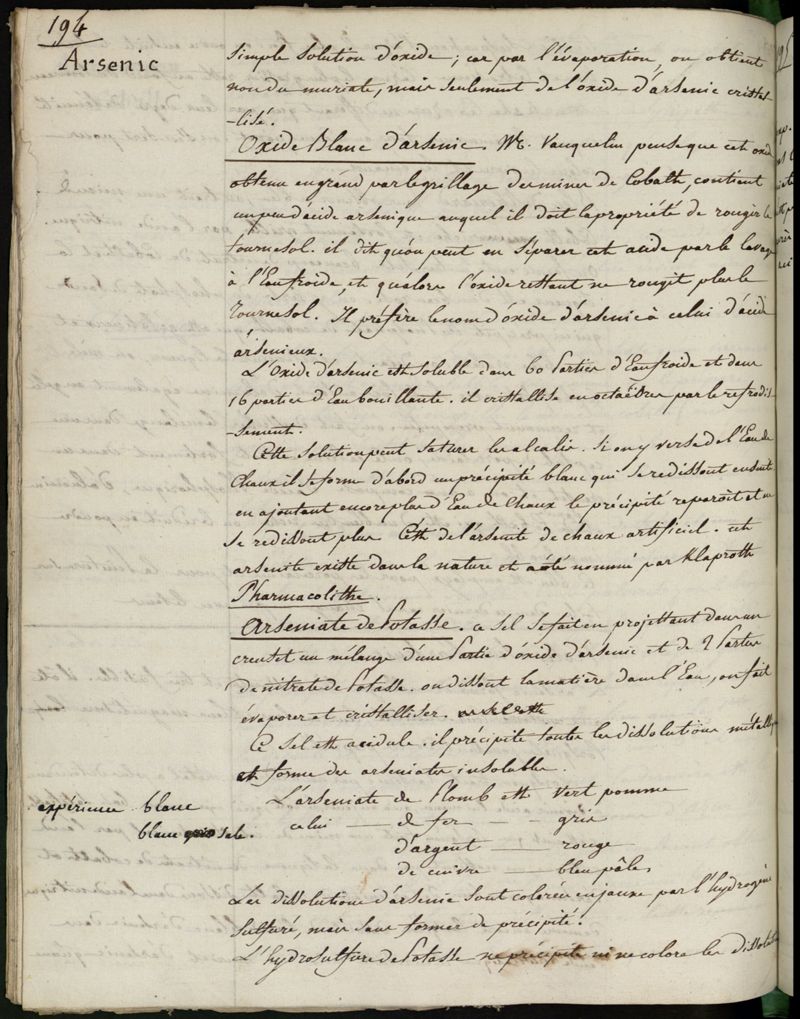 194
Arsenic
simple solution d'oxide; car par l'évaporation, on obtient
non du muriate, mais seulement de l'oxide d'arsenic cristal-
-lisé.
Oxide Blanc d'arsenic. Mr. Vauquelin pense que cet oxide
obtenu en grand par le grillage des mines de Cobalth, contient
un peu d'acide arsenique auquel il doit la propriété de rougir le
tournesol. il dit qu'on peut en séparer cet acide par le lavage
à l'Eau froide, et qu'alors l'oxide restant ne rougit plus le
Tournesol. Il préfère le nom d'oxide d'arsenic à celui d'acide
arsenieux.
L'Oxide d'arsenic est soluble dans 60 Parties d'Eau froide et dans
16 parties d'Eau bouillante. il cristallise en octaëdres par le refroidis-
-sement.
Cette solution peut saturer les alcalis. Si on y verse de l'Eau de
Chaux il se forme d'abord un précipité blanc qui se redissout ensuite
en ajoutant encore plus d'Eau de Chaux le précipité reparoit et ne
se redissout plus C'est de l'arsenite de chaux artificiel. cet
arsenite existe dans la nature et a été nommé par Klaproth
Pharmacolithe.
Arseniate de Potasse. ce sel se fait en projettant dans un
creuset un mélange d'une Partie d'oxide d'arsenic et de 2 Parties
de nitrate de Potasse. on dissout la matière dans l'Eau, on fait
évaporer et cristalliser.
Ce sel est acidule. il précipite toutes les dissolutions métalliques
et forme des arseniates insolubles.
L'arseniate de Plomb est vert pomme
expérience blanc
celui — de fer — — gris
blanc sale.
d'argent — rouge
de cuivre — bleu pâle.
Les dissolutions d'arsenic sont colorées en jaune par l'hydrogène
sulfuré, mais sans former de précipité.
L'hydrosulfure de Potasse ne précipite ni ne colore les dissolutions